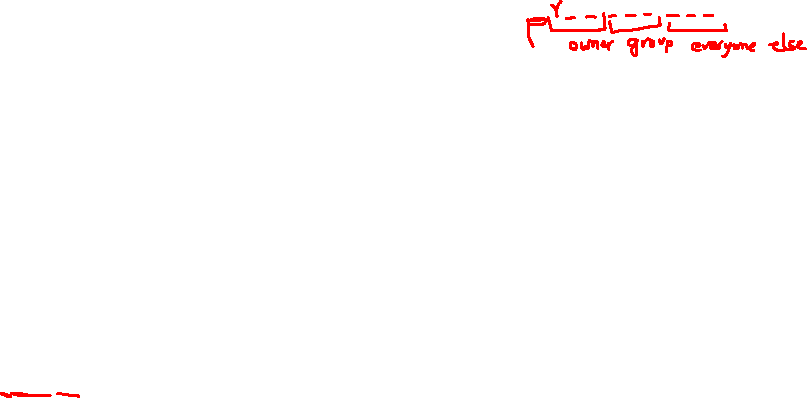 r
owner group everyone else